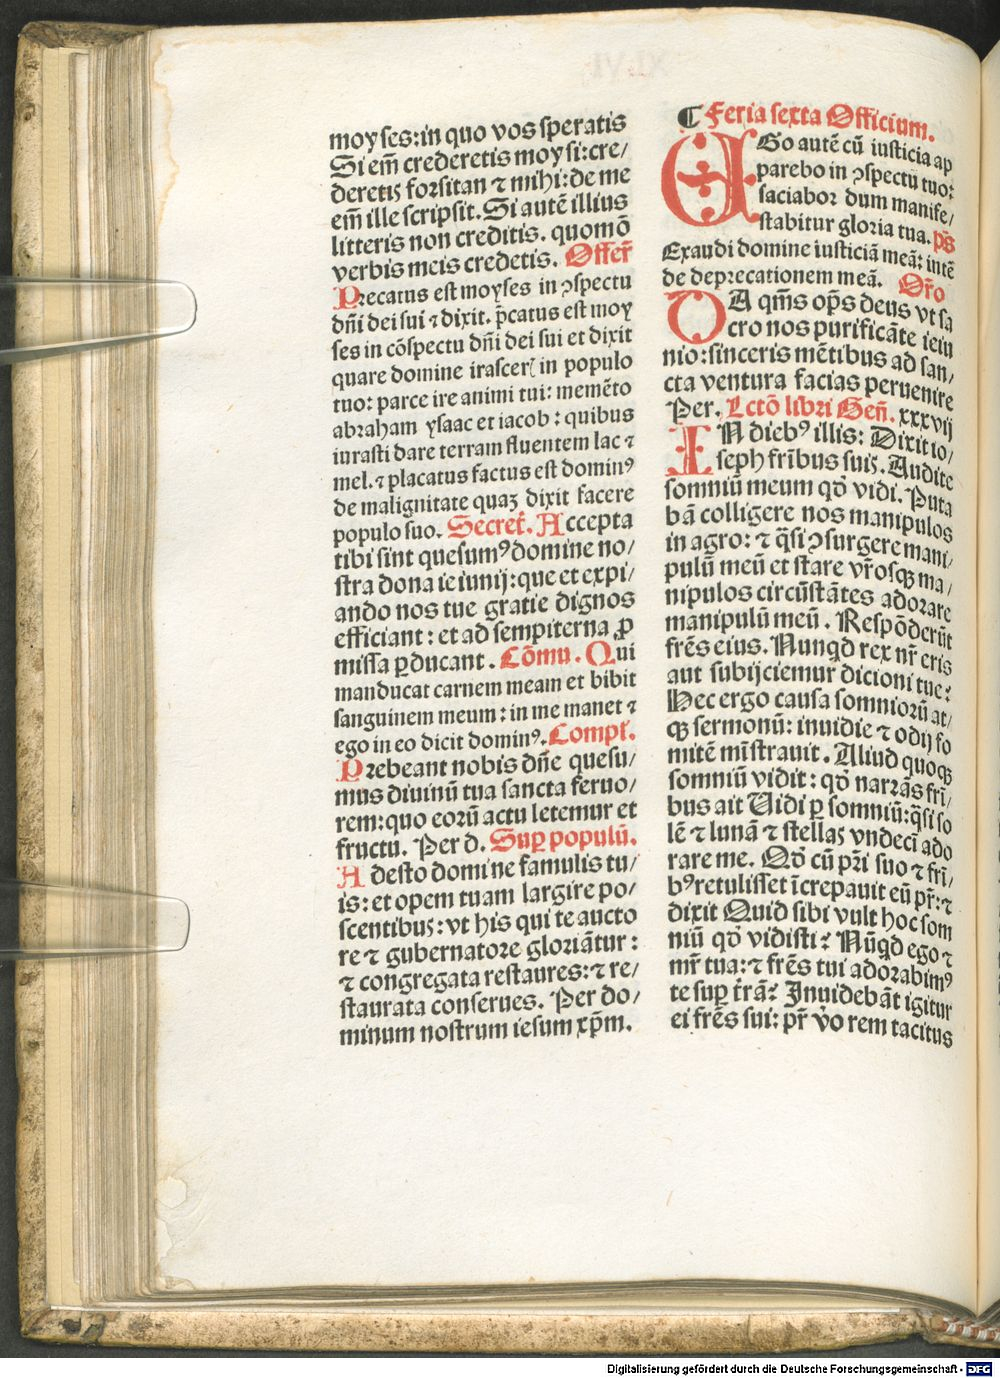 moyses:in quo vos speratis
Si em̄ crederetis moysi:cre/
deretis forsitan ⁊ mihi:de me
em̄ ille scripsit. Si autē illius
litteris non creditis. quomō
verbis meis credetis. Offer̄
Precatus est moyses in ꝯspectu
dn̄i dei sui ⁊ dixit. p̄catus est moy
ses in cōspectu dn̄i dei sui et dixit
quare domine irascer̄ in populo
tuo: parce ire animi tui: memēto
abraham ysaac et iacob: quibus
iurasti dare terram fluentem lac ⁊
mel. ⁊ placatus factus est dominꝰ
de malignitate quaʒ dixit facere
populo suo. Secret̄. Accepta
tibi sint quesumꝰ domine no/
stra dona ieiunij: que et expi/
ando nos tue gratie dignos
efficiant: et ad sempiterna ꝓ
missa ꝑducant. Cōmu. Qui
manducat carnem meam et bibit
sanguinem meum: in me manet ⁊
ego in eo dicit dominꝰ. Compl̄.
Prebeant nobis dn̄e quesu/
mus diuinū tua sancta feruo/
rem: quo eorū actu letemur et
fructu. Per d. Suꝑ populū.
Adesto domine famulis tu/
is: et opem tuam largire po/
scentibus: vt his qui te aucto
re ⁊ gubernatore gloriātur:
⁊ congregata restaures: ⁊ re/
staurata conserues. Per do/
minum nostrum iesum xp̄m.
¶ Feria sexta Officium.
EGo autē cū iusticia ap
parebo in ꝯspectu tuo:
saciabor dum manife/
stabitur gloria tua. p̄s
Exaudi domine iusticiā meā: intē
de deprecationem meā. Or̄o
DA qm̄s op̄s deus vt sa
cro nos purificāte ieiu
nio: sinceris mētibus ad san/
cta ventura facias peruenire
Per. Lctō libri Gen̄. xxxvij
IN diebꝰ illis: Dixit io/
seph fr̄ibus suis. Audite
somniū meum qd̄ vidi. Puta
bā colligere nos manipulos
in agro: ⁊ q̄si ꝯsurgere mani/
pulū meū et stare vr̄osqꝫ ma/
nipulos circūstātes adorare
manipulū meū. Respōderūt
fr̄es eius. Nunqd rex nr̄ eris
aut subijciemur dicioni tue?
Hec ergo causa somniorū at/
qꝫ sermonū: inuidie ⁊ odij fo
mitē mīstrauit. Aliud quoqꝫ
somniū vidit: qd̄ narrās fr̄i/
bus ait Uidi ꝑ somniū: q̄si so
lē ⁊ lunā ⁊ stellas vndecī ado
rare me. Qd̄ cū pr̄i suo ⁊ fr̄i/
bꝰ retulisset īcrepauit eū pr̄: ⁊
dixit Quid sibi vult hoc som
niū qd̄ vidisti? Nūqd ego ⁊
mr̄ tua: ⁊ fr̄es tui adorabimꝰ
te suꝑ tr̄ā? Inuidebāt igitur
ei fr̄es sui: pr̄ v̄o rem tacitus
Digitalisierung gefördert durch die Deutsche Forschungsgemeinschaft - DFG